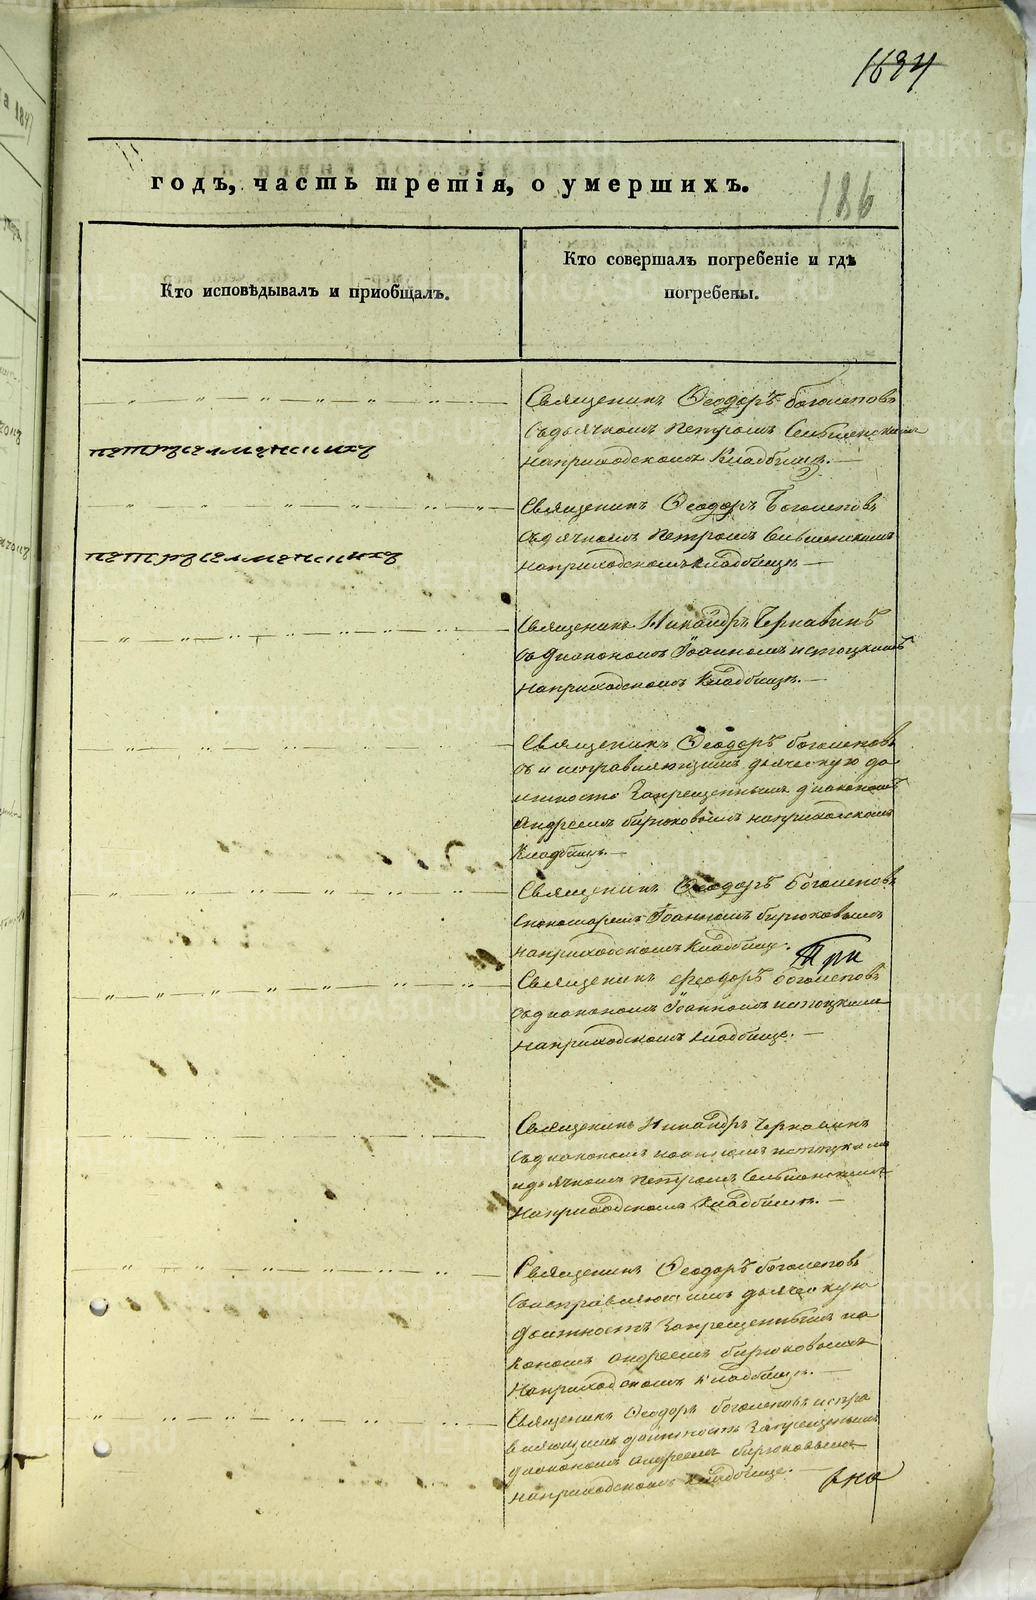 1634
годъ, часть третія, о умершихъ.
186
Кто исповѣдывалъ и приобщалъ.
Кто совершалъ погребеніе и гдѣ
погребены.
Священникъ Ѳеодоръ Боголеповъ
съ дьячкомъ Петромъ Сельменскимъ
на приходскомъ кладбищѣ.
Священникъ Ѳеодоръ Боголеповъ
съ дьячкомъ Петромъ Сельменскимъ
на приходскомъ кладбищѣ
Священникъ Никандръ Чернавинъ
съ диакономъ Іоанномъ Истоцкимъ
на приходскомъ кладбищѣ.
Священникъ Ѳеодоръ Боголеповъ
съ и исправляющимъ дьяческую до
лжность запрещеннымъ диакономъ
Андреемъ Бирюковымъ на приходскомъ
кладбищѣ.
Священникъ Ѳеодоръ Боголеповъ
с пономаремъ Іоанномъ Бирюковымъ
на приходскомъ кладбище.
Три
Священникъ Феодоръ Боголеповъ
съ диакономъ Іоанномъ Истоцкимъ
на приходскомъ кладбище.
Священникъ Никандръ Чернавинъ
съ диакономъ Иоанномъ Истоцкимъ
и дьячкомъ Петромъ Сельменскимъ
на приходскомъ кладбищѣ.
Священникъ Ѳеодоръ Боголеповъ
съ исправляющимъ дьяческую
должность запрещеннымъ диа
кономъ Андреемъ Бирюковымъ
на приходскомъ кладбищѣ.
Священникъ Ѳеодоръ Боголеповъ испра
вляющимъ должность запрещеннымъ
диакономъ Андреемъ Бирюковымъ
на приходскомъ кладбище.
METRIKI.GASO-URAL.RU